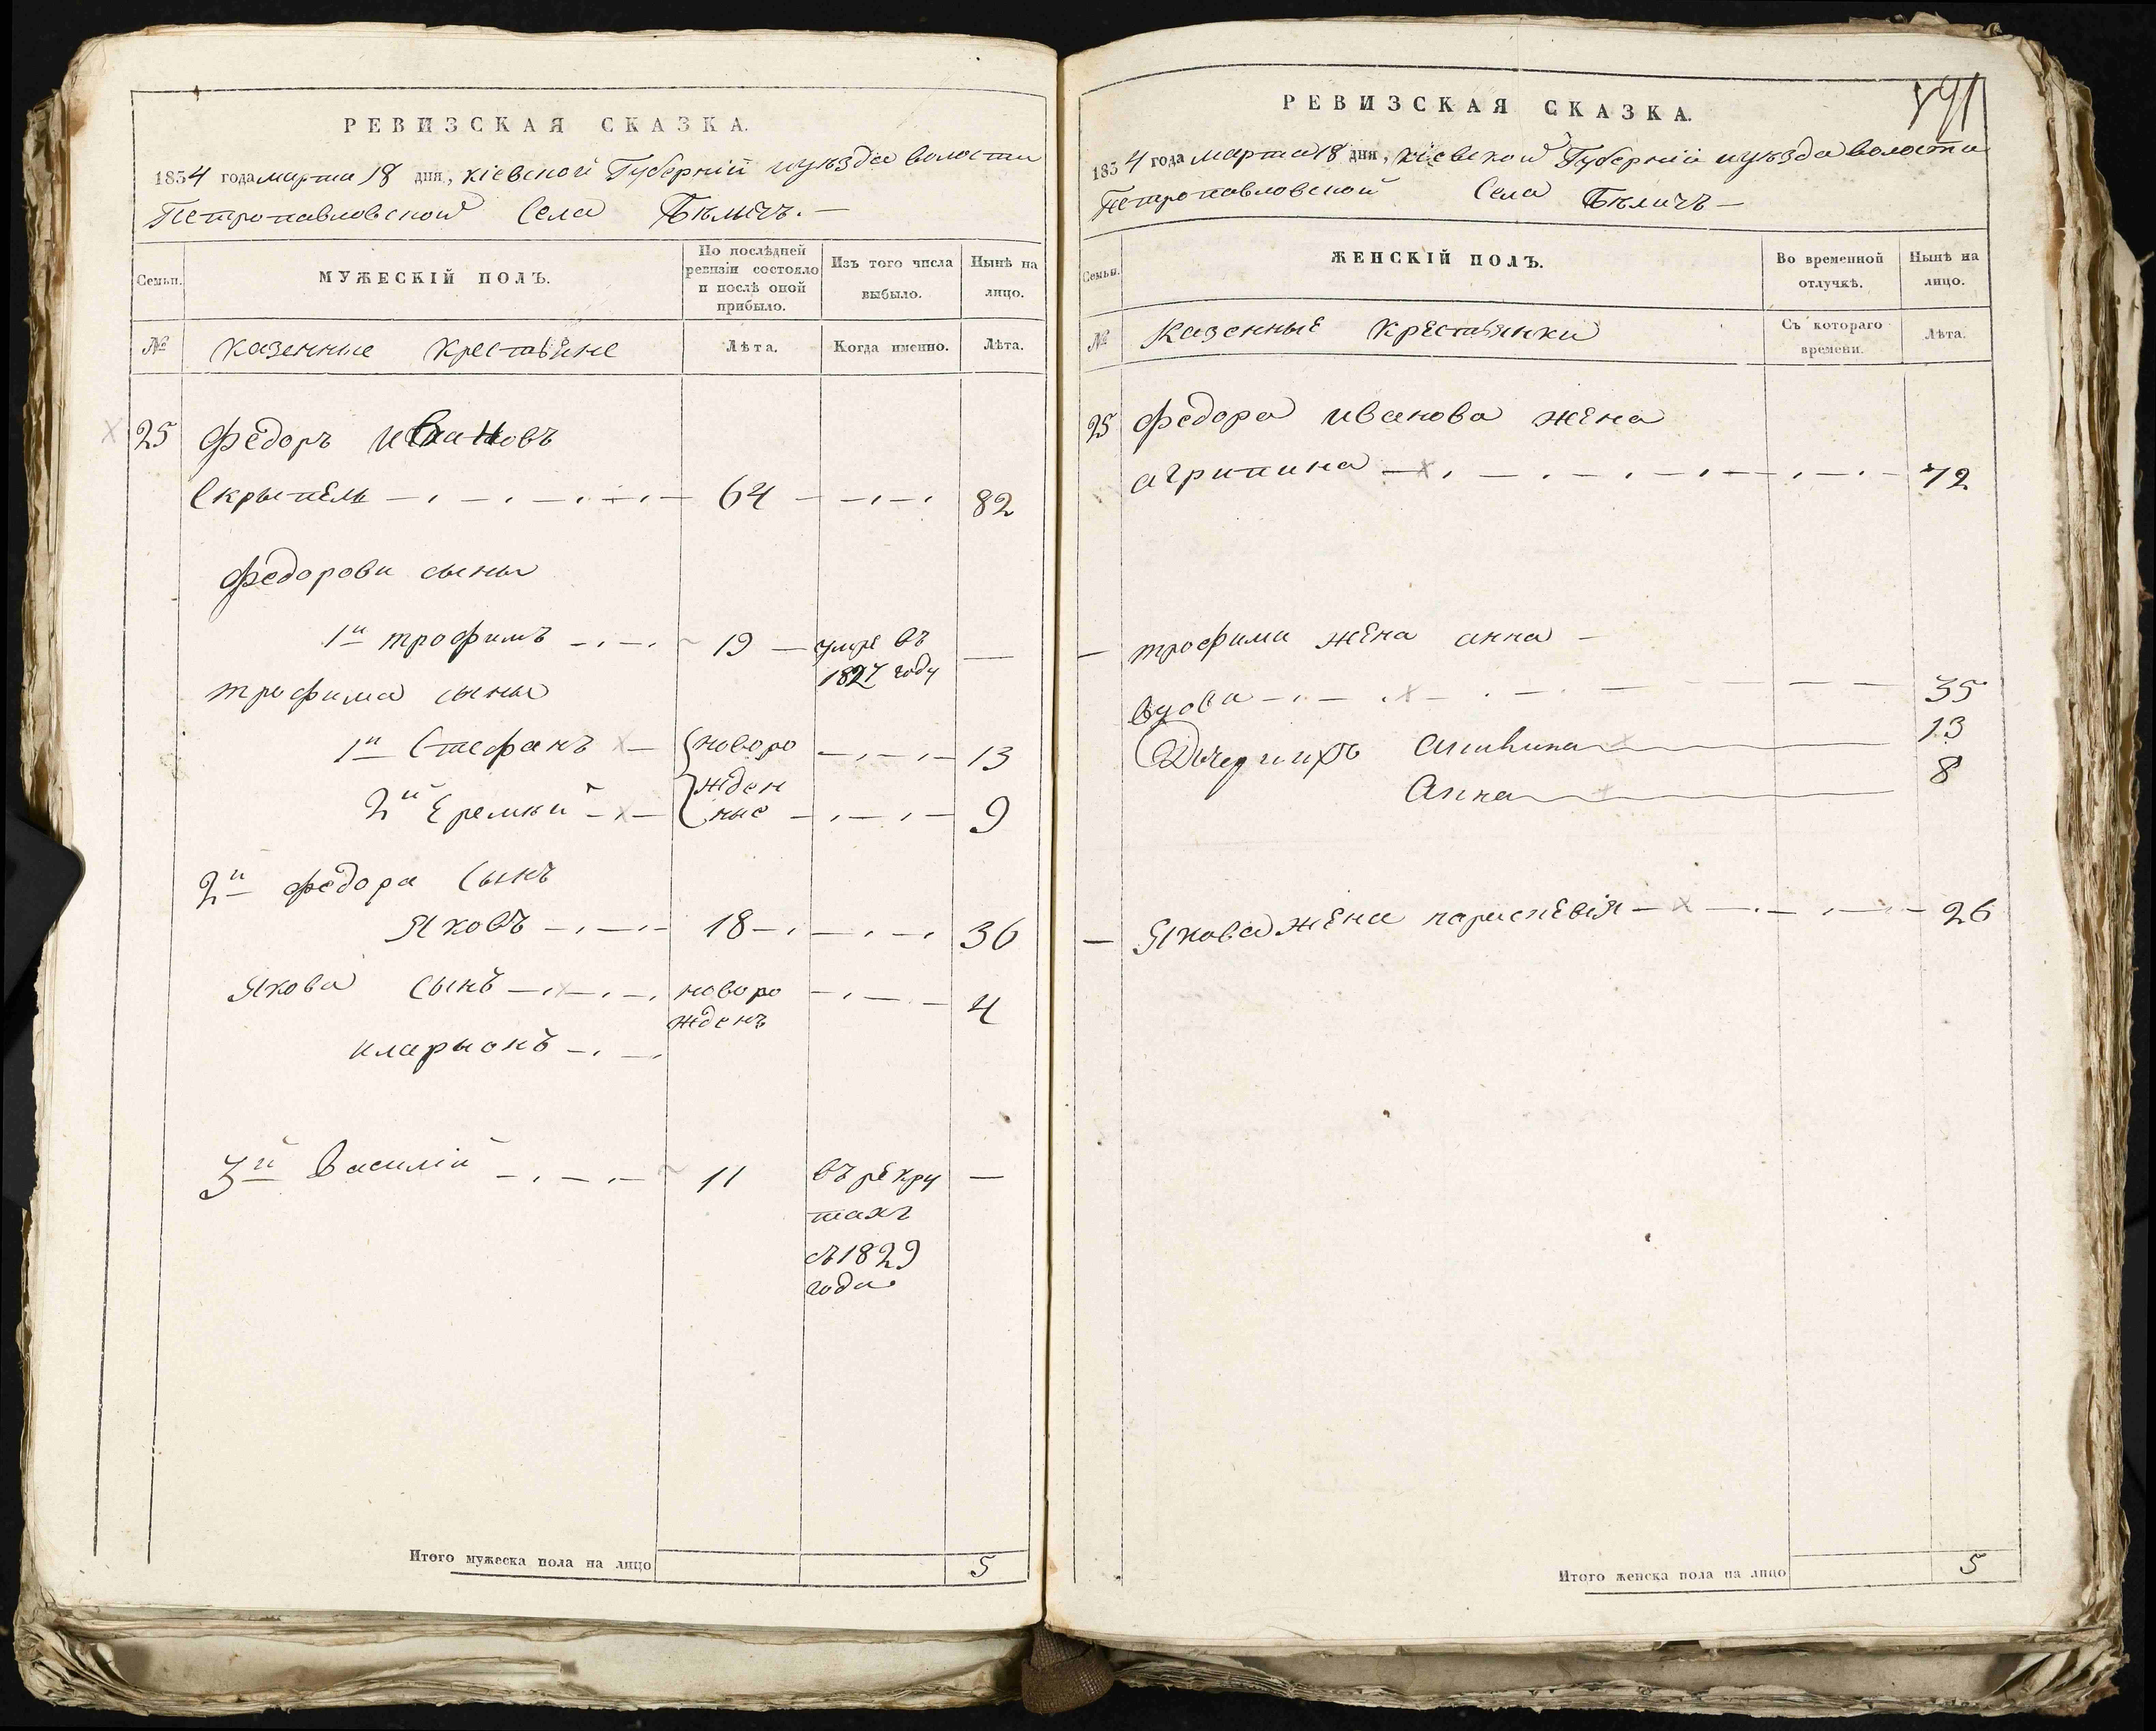 РЕВИЗСКАЯ СКАЗКА.
1834 года марта 18 дня, Кіевской Губерніи и уѣзда волости
Петропавловской Села Бѣличъ. —
Семьи.
МУЖЕСКІЙ ПОЛЪ.
По послѣдней ревизіи состояло и послѣ оной прибыло.
Изъ того числа выбыло.
Нынѣ на лицо.
№
Казенные Крестьяне
Лѣта.
Когда именно.
Лѣта.
25 Федоръ Ивановъ
Скрыпель — 64 — 82
Федорови сыны
1й трофимъ — 19 — умре въ —
1827 году
трофима сыны
1й Стефанъ — новоро — 13
жден
2й Еремѣй — ные — 9
2й федора Сынъ
Яковъ — 18 — 36
Якова Сынъ — новоро — 4
жденъ
иларыонъ —
3й Василій — 11 въ рекру —
тахъ
съ 1829
года
Итого мужеска пола на лицо 5
РЕВИЗСКАЯ СКАЗКА.
1834 года марта 18 дня, Кіевской Губерніи и уѣзда волости
Петропавловской Села Бѣличъ —
Семьи.
ЖЕНСКІЙ ПОЛЪ.
Во временной отлучкѣ.
Нынѣ на лицо.
№
Казенные Крестьянки
Съ котораго времени.
Лѣта.
25 Федора Иванова жена
агрипина — 72
— трофими жена анна —
вдова — 35
Дочери ихъ 13
Анна 8
— Якова жена параскевія — 26
Итого женска пола на лицо 5